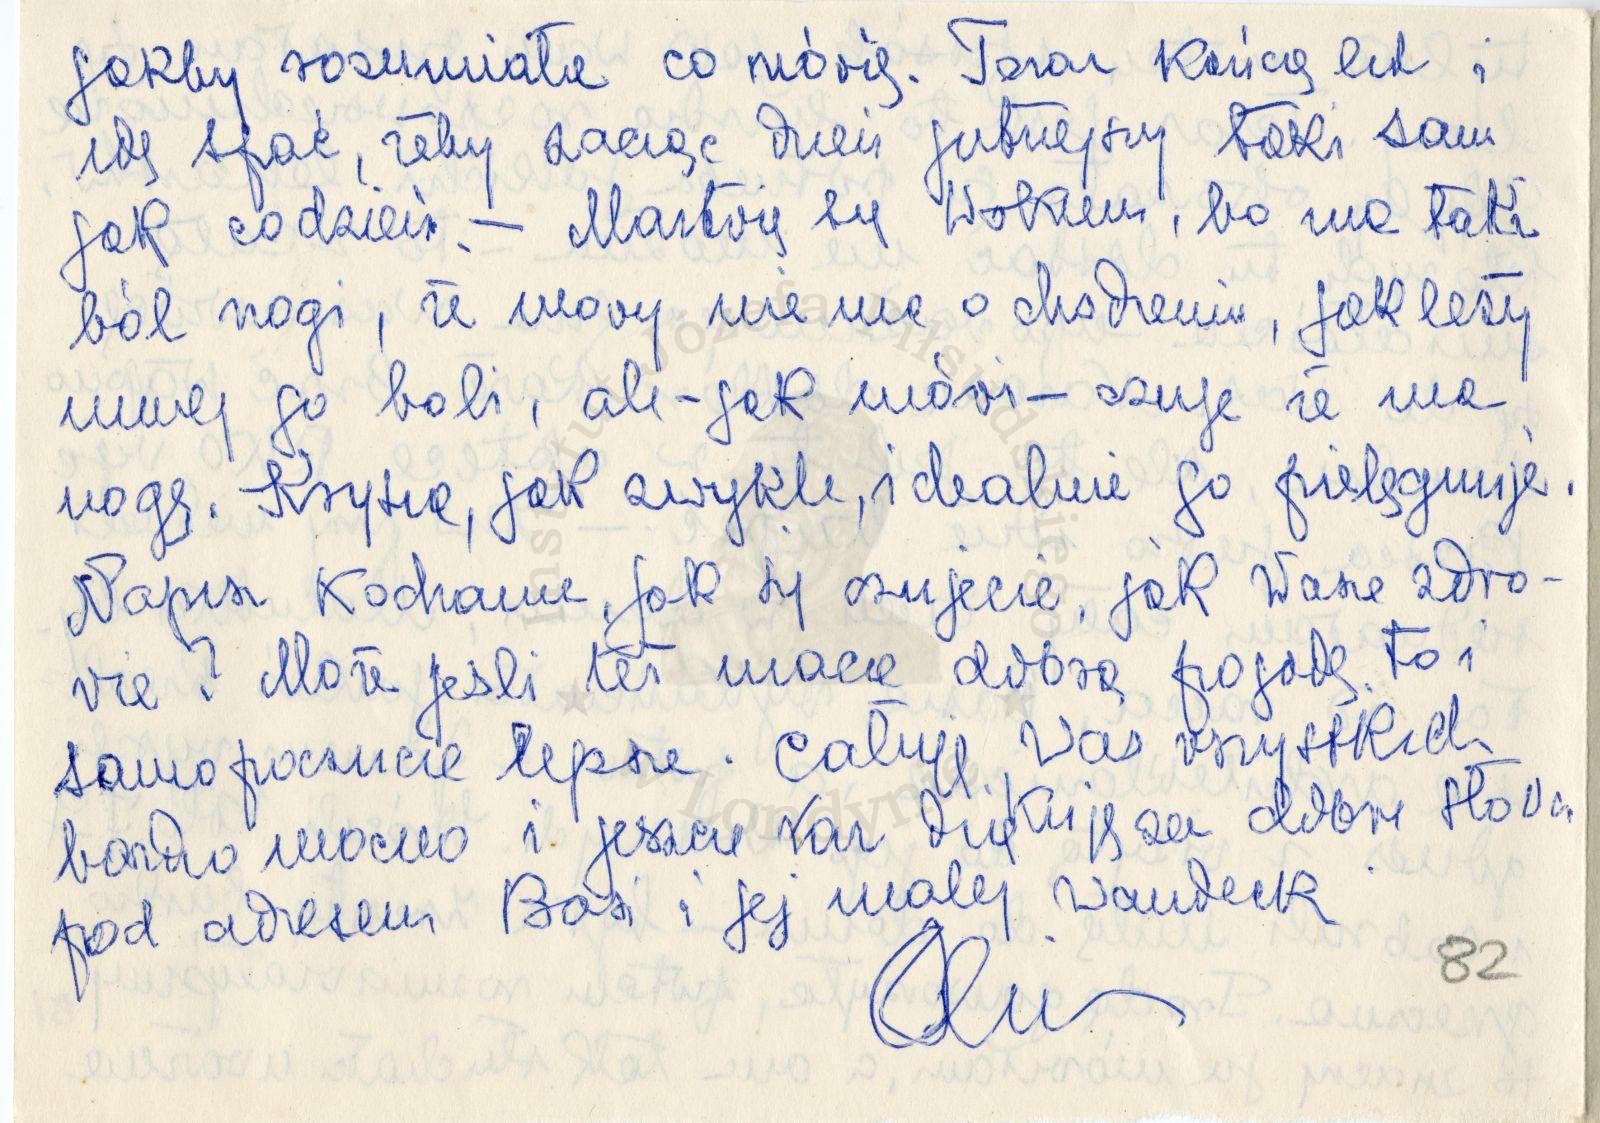 jakby rozumiała co mówię. Teraz kończę list i
idę spać, żeby zacząć dzień jutrzejszy taki sam
jak codzień. – Martwię się Wokiem, bo ma taki
ból nogi, że mowy nie ma o chodzeniu, jak leży
mniej go boli, ale – jak mówi – czuje że ma
nogę. Krysia, jak zwykle, idealnie go pielęgnuje.
Napisz Kochanie, jak się czujecie, jak Wasze zdro-
wie? Może jeśli też macie dobrą pogodę, to i
samopoczucie lepsze. Całuję Was wszystkich
bardzo mocno i jeszcze raz dziękuję za dobre słowa
pod adresem Basi i jej małej Wandeczki
82
Instytut Józefa Piłsudskiego
w Londynie